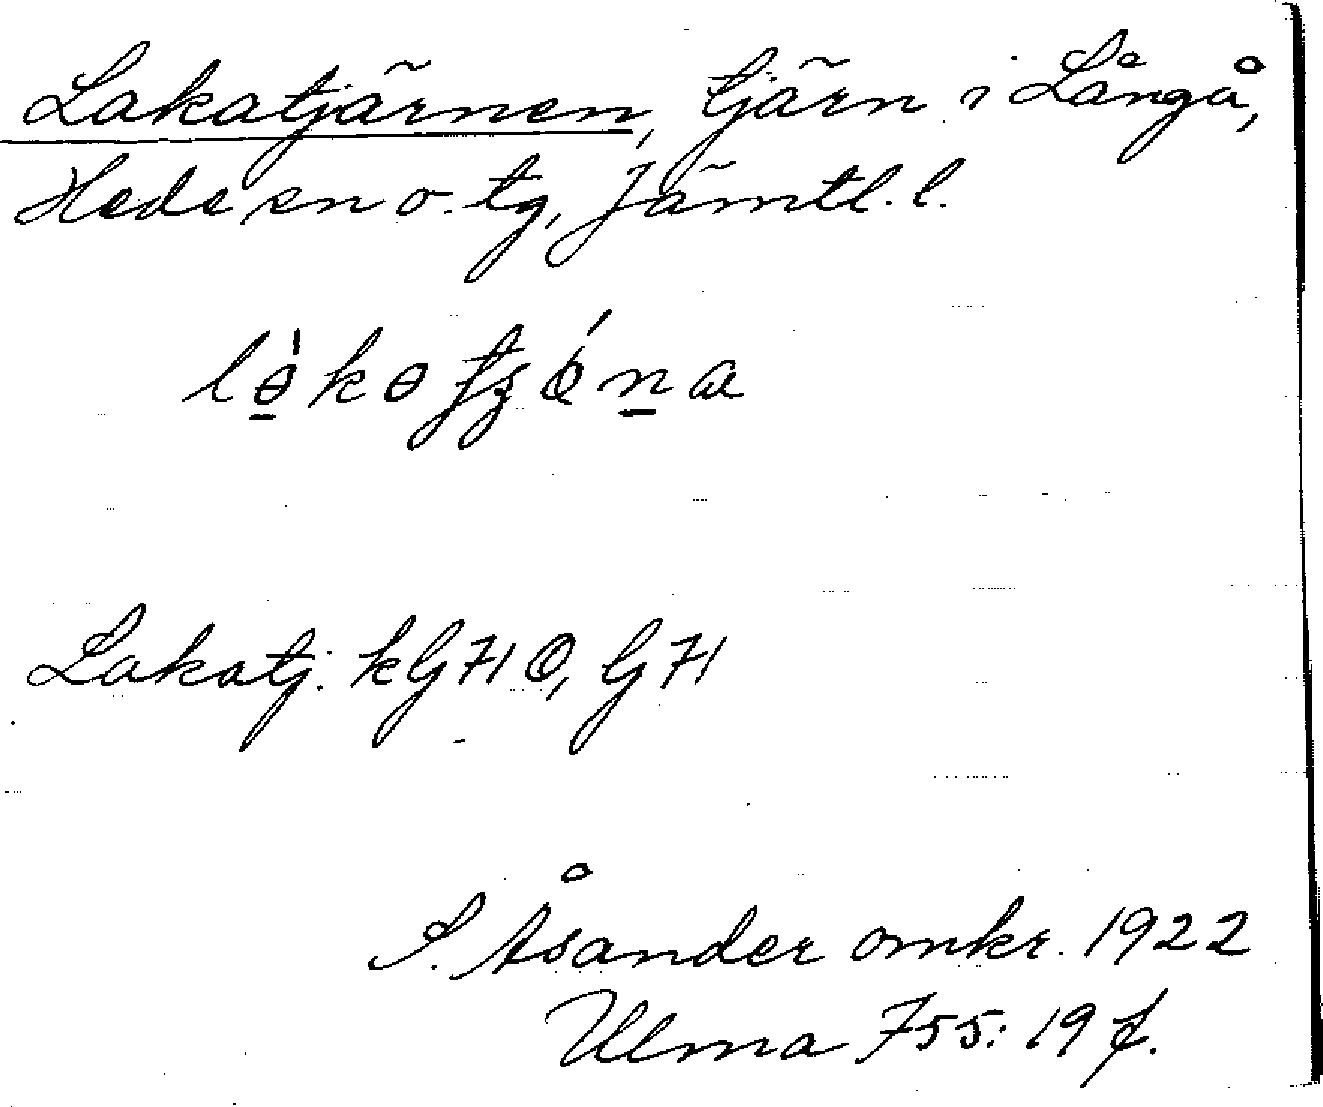 Lakatjärnen, tjärn i Långå,
Hede sn o. tg, Jämtl. l.
lɵ̀kɵtʒǿna
Lakatj. kG71Ö, G71
S. Åsander omkr. 1922
Ulma 755: 19 f.